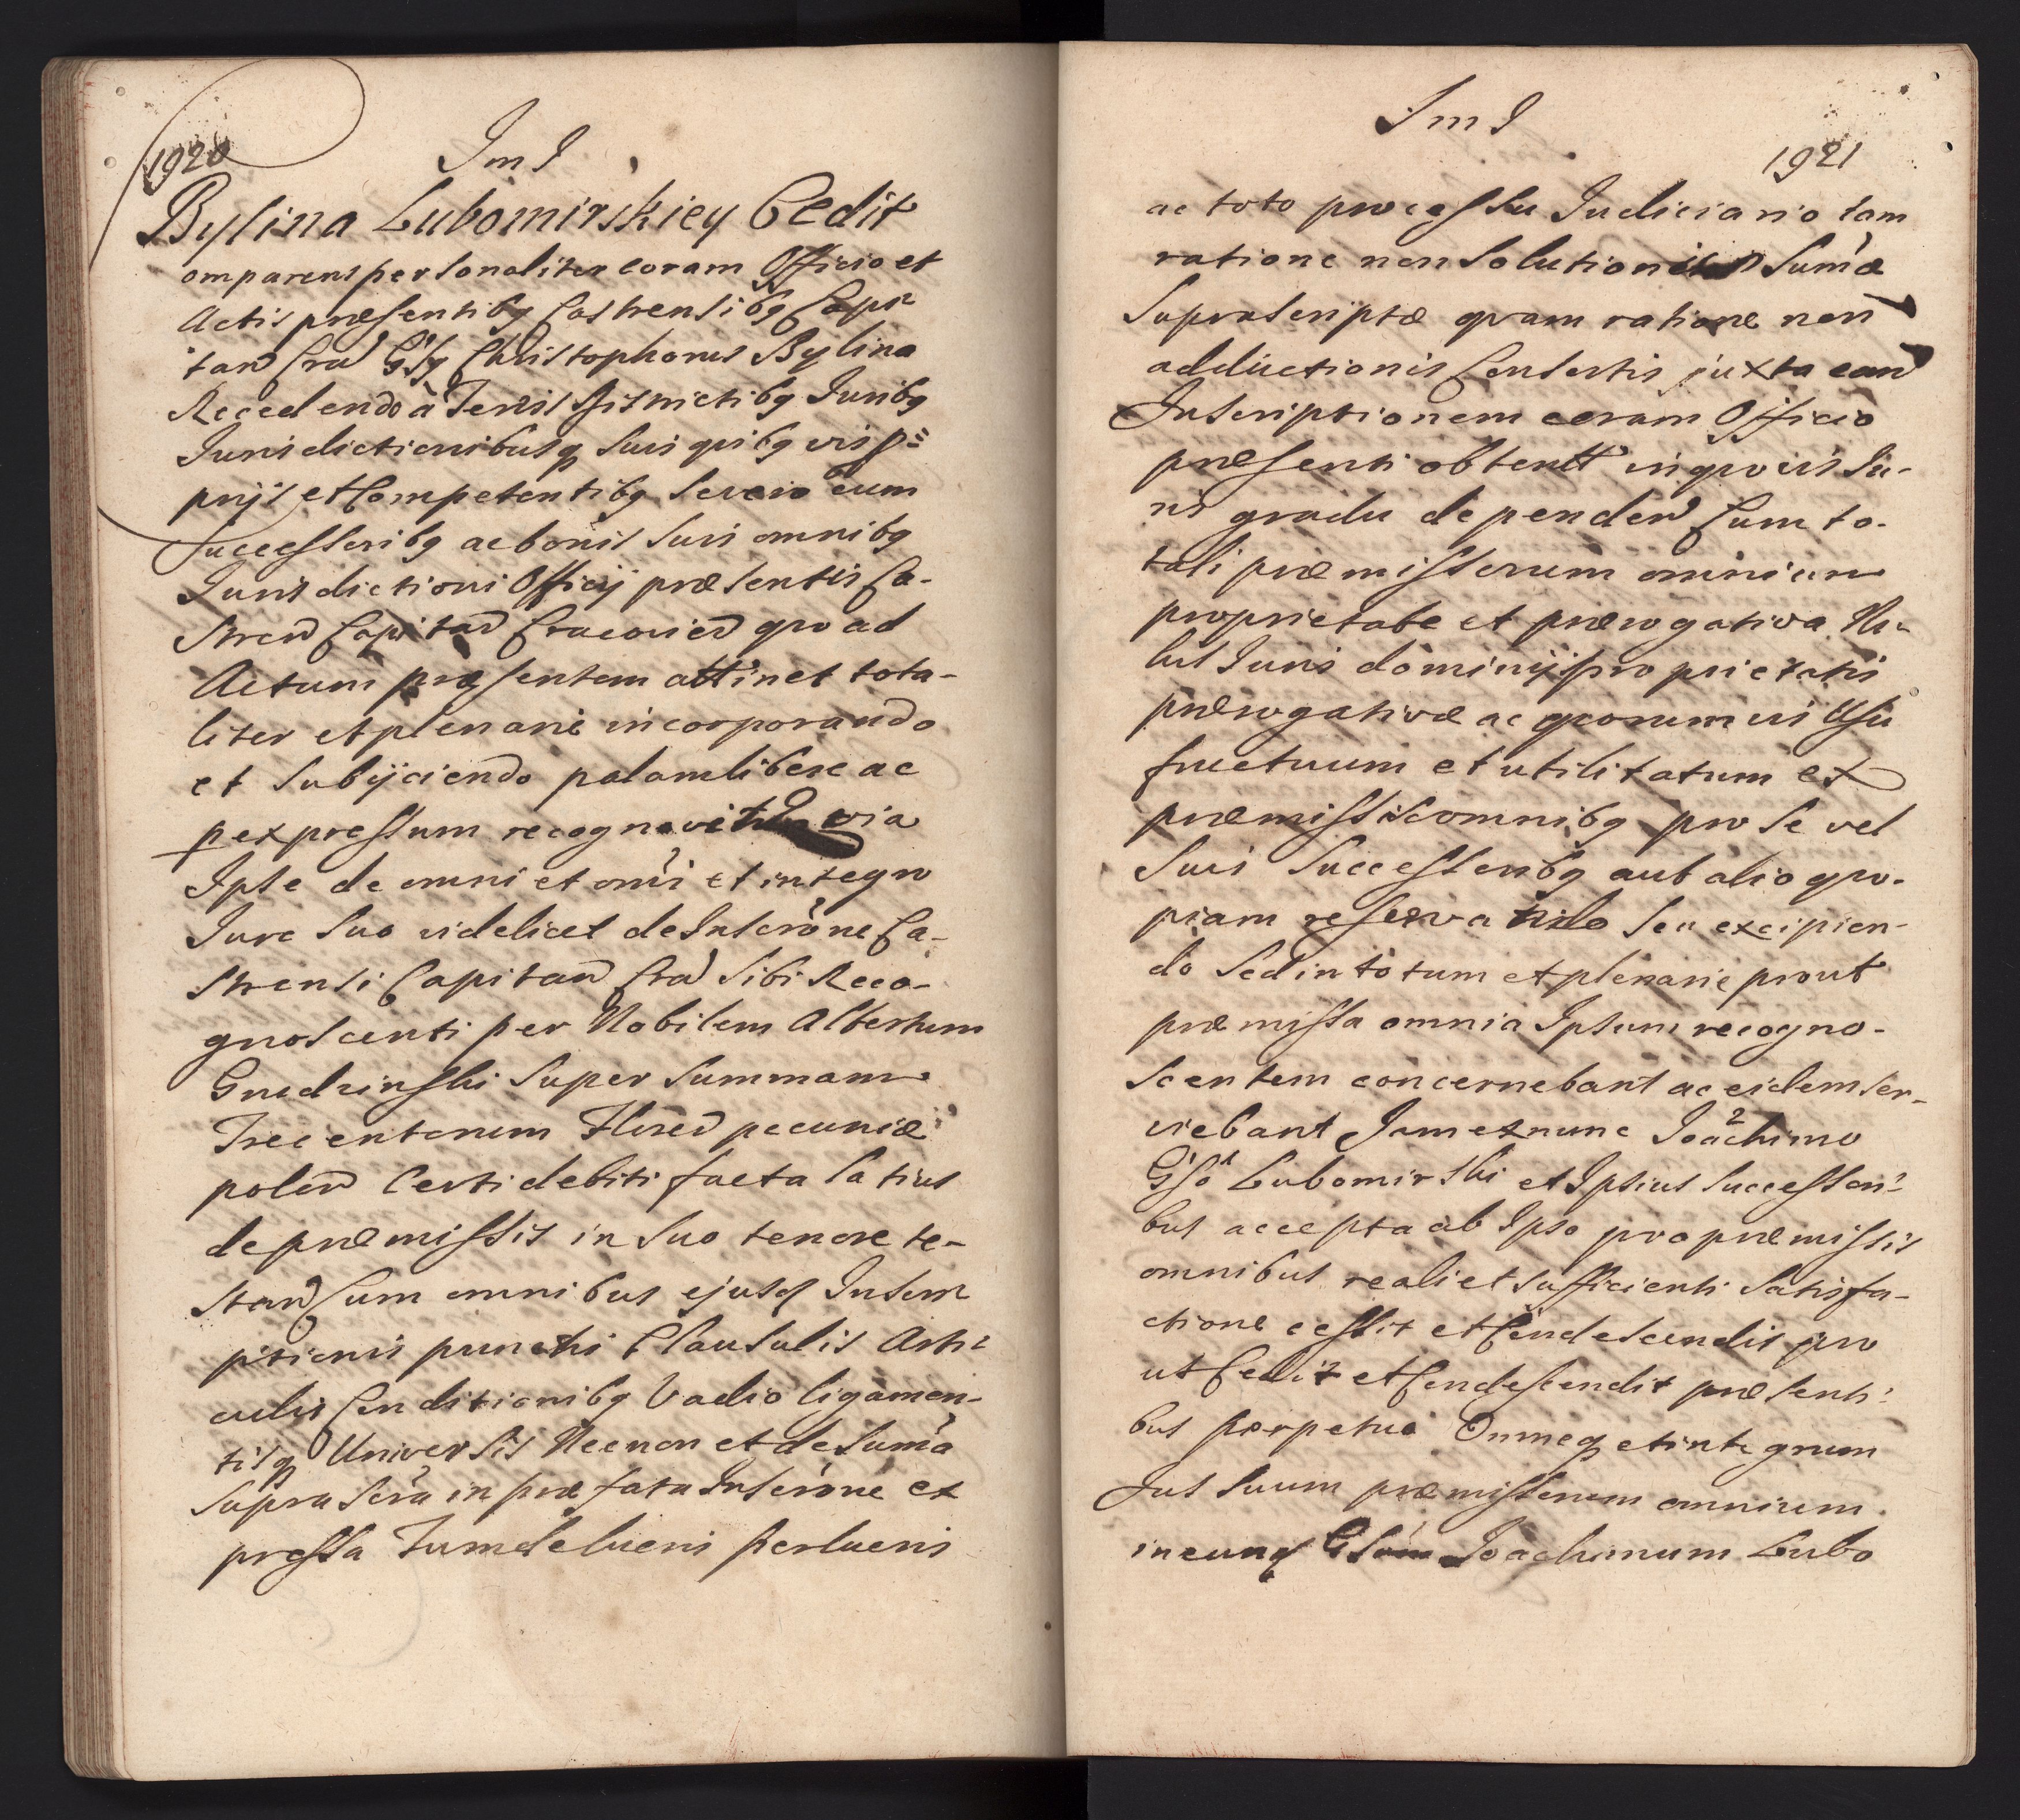 1920
Im I
Bylina Lubomirskiey Cedit
omparens personaliter coram Officio et
Actis præsentibq Castrensibq Capi
tan Cra Gsq Christophorus Bylina
Recedendo à Terris Districtibq Juribq
Jurisdictionibusq suis qvibqvis p=
prijs et Competentibq se vero cum
Successoribq ac bonis suis omnibq
Jurisdictioni Officij præsentis Ca-
stren Capitan Cracovien qvo ad
Actum præsentem attinet tota-
liter et plenarie incorporando
et subijciendo palam libere ac
p expressum recognovit qvia
Ipse de omni et omi et integro
Jure suo videlicet de Inscrone Ca-
strensi Capitan Cra sibi Reco-
gnoscenti per Nobilem Albertum
Gnedzinski super summam
Trecentorum Floren pecuniæ
polon Certi debiti facta latius
de præmissis in suo tenore te-
stan Cum omnibus ejusq Inscri
ptionis punctis Clausulis Arti
culis Conditionibq Vadio ligamen-
tisq Universis Necnon et de suma
suprascra in præfata Inscrone ex
pressa Tum de lucris perlucris
Im I
1921
ac toto processu Judiciario tam
ratione non solutionis Sumæ
Suprascriptæ qvam ratione non
adductionis Consortis juxta ean
Inscriptionem coram Officio
præsenti obtent in qvovis Ju-
ris gradu dependen Cum to-
tali præmissorum omnium
proprietate et prærogativa Ni-
hil Juris dominij proprietatis
prærogativæ ac qvorumvis Usu
fructuum et utilitatum ex
præmissis omnibq pro se vel
suis Successoribq aut alio qvo-
piam reservando seu excipien-
do sed in totum et plenarie prout
præmissa omnia Ipsum recogno-
scentem concernebant ac eidem ser-
viebant Jam ex nunc Joachimo
Gso Lubomirski et Ipsius successori
bus accepta ab Ipso pro præmissis
omnibus reali et sufficienti satisfa-
ctione cessit et Condescendit pro
ut Cedit et Condescendit præsenti
bus perpetuo Omneq et integrum
Jus suum præmissorum omnium
in eunq Gsum Joachimum Lubo